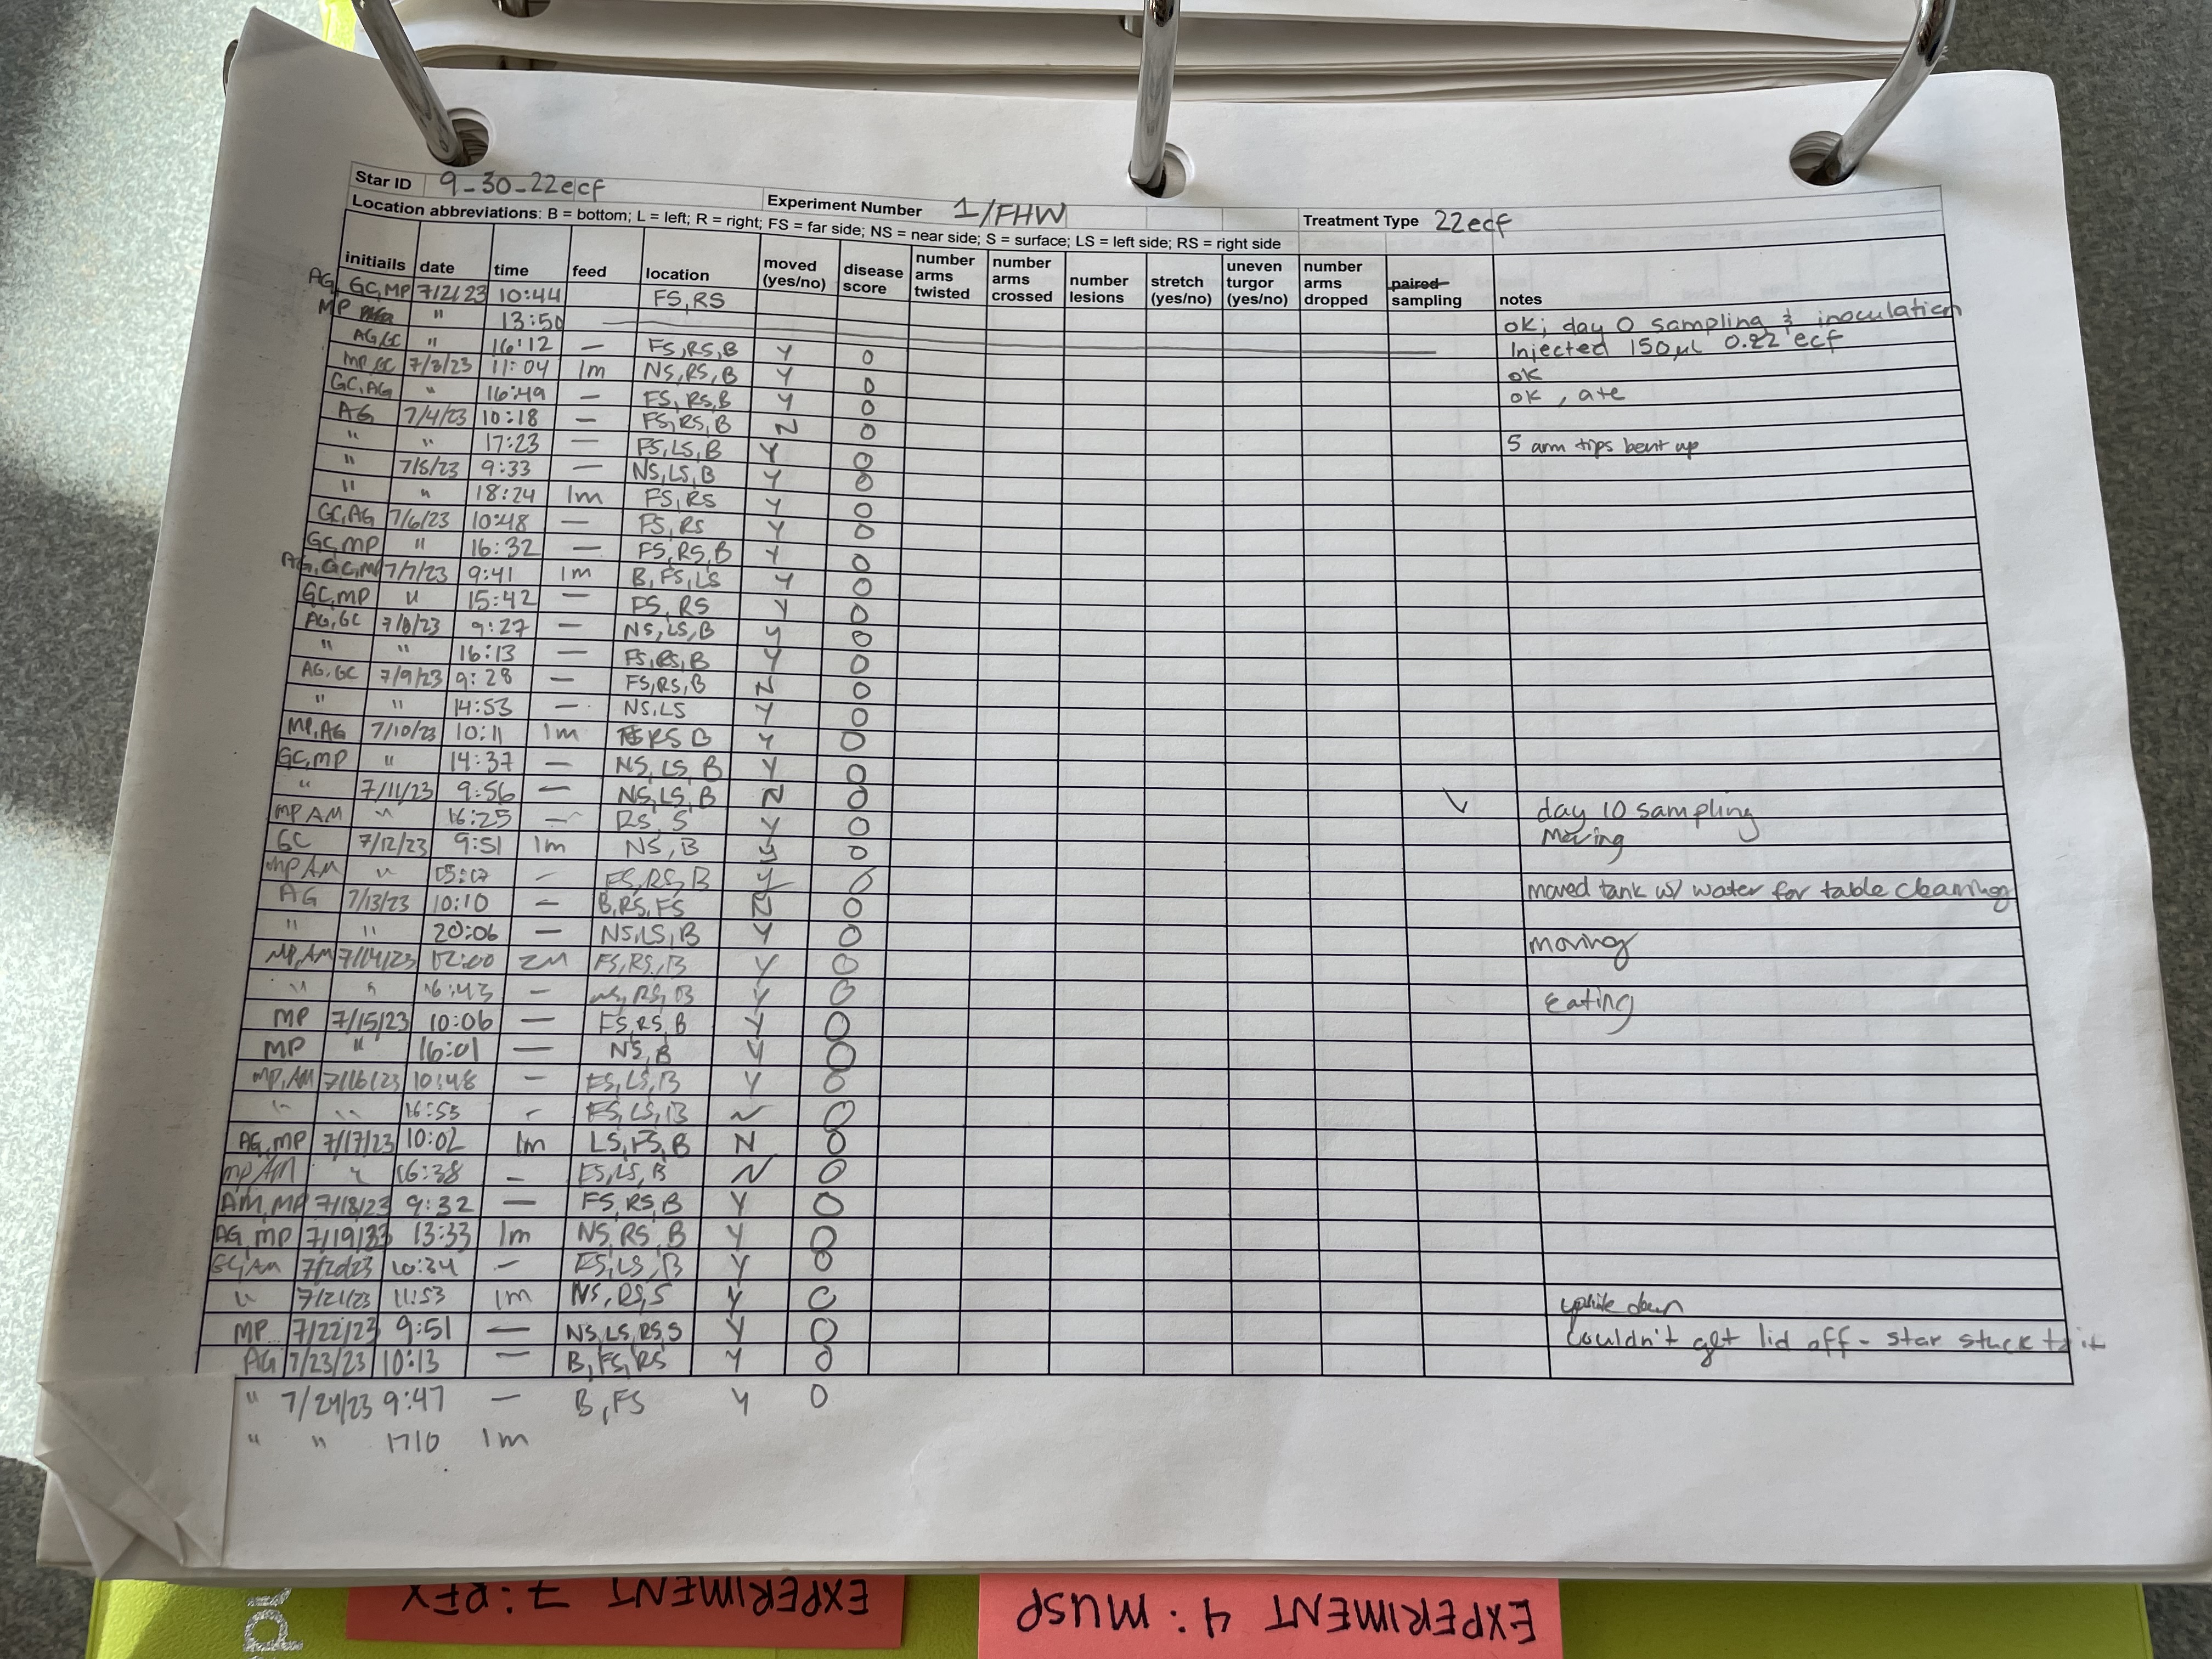 Star ID 9_30_22ecf Experiment Number 1/FHW Treatment Type 22ecf
Location abbreviations: B = bottom; L = left; R = right; FS = far side; NS = near side; S = surface; LS = left side; RS = right side
initiails date time feed location moved (yes/no) disease score number arms twisted number arms crossed number lesions stretch (yes/no) uneven turgor (yes/no) number arms dropped paired sampling notes
AG, GC, MP 7/2/23 10:44 FS, RS ok; day 0 sampling & inoculation
MP " 13:50 — Injected 150µl 0.22 ecf
AG, GC " 16:12 — FS, RS, B Y 0 ok
MP, GC 7/3/23 11:04 1m NS, RS, B Y 0 ok, ate
GC, AG " 16:49 — FS, RS, B Y 0
AG 7/4/23 10:18 — FS, RS, B N 0 5 arm tips bent up
" " 17:23 — FS, LS, B Y 0
" 7/5/23 9:33 — NS, LS, B Y 0
" " 18:24 1m FS, RS Y 0
GC, AG 7/6/23 10:48 — FS, RS Y 0
GC, MP " 16:32 — FS, RS, B Y 0
AG, GC, M 7/7/23 9:41 1m B, FS, LS Y 0
GC, MP " 15:42 — FS, RS Y 0
AG, GC 7/8/23 9:27 — NS, LS, B Y 0
" " 16:13 — FS, RS, B Y 0
AG, GC 7/9/23 9:28 — FS, RS, B N 0
" " 14:53 — NS, LS Y 0
MP, AG 7/10/23 10:11 1m RS B Y 0
GC, MP " 14:37 — NS, LS, B Y 0
" 7/11/23 9:56 — NS, LS, B N 0 ✓ day 10 sampling
MP AM " 16:25 — RS, S Y 0 Moving
GC 7/12/23 9:51 1m NS, B Y 0
MP AM " 15:07 – FS, RS, B Y 0 moved tank w/ water for table cleaning
AG 7/13/23 10:10 — B, RS, FS N 0
" " 20:06 — NS, LS, B Y 0 moving
MP, AM 7/14/23 12:00 2M FS, RS, B Y 0
" " 16:43 – NS, RS, B Y 0 Eating
MP 7/15/23 10:06 — FS, RS, B Y 0
MP " 16:01 — NS, B Y 0
MP, AM 7/16/23 10:48 – FS, LS, B Y 0
" " 16:55 – FS, LS, B N 0
AG, MP 7/17/23 10:02 1m LS, FS, B N 0
MP AM " 16:38 – FS, LS, B N 0
AM, MP 7/18/23 9:32 — FS, RS, B Y 0
AG, MP 7/19/23 13:33 1m NS, RS, B Y 0
GC, AM 7/20/23 10:34 – FS, LS, B Y 0
" 7/21/23 11:53 1m NS, RS, S Y 0 upside down
MP 7/22/23 9:51 — NS, LS, RS, S Y 0 couldn't get lid off - star stuck to it
AG 7/23/23 10:13 — B, FS, RS Y 0
" 7/24/23 9:47 — B, FS Y 0
" " 1710 1m
EXPERIMENT 7: PFX
EXPERIMENT 4: MUSP